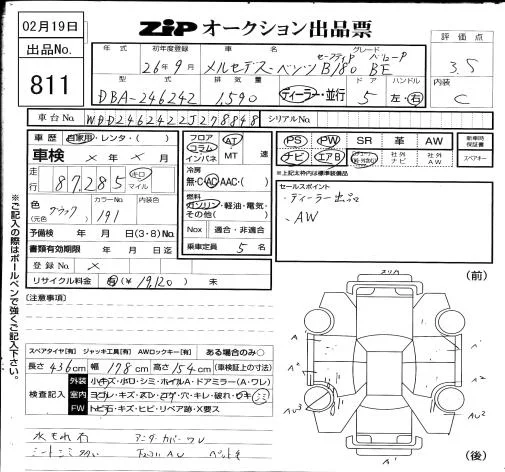 02月19日
ZIP オークション出品票
出品No.
811
評価点
3.5
内装
C
年式 初年度登録 車名 グレード
26年9月 メルセデス-ベンツ B180 BE
型式 排気量 ドア ハンドル
DBA-246242 1,590 ディーラー・並行 5 左・右
車台No. WDD2462422J278848 シリアルNo.
車歴 自家用・レンタ・( )
車検 × 年 × 月
走行 87,285 キロ マイル
色(元色) カラーNo. 191 内装色
予備検 年 月 日(3・8)No.
書類有効期限 年 月 日迄
登録No. ×
リサイクル料金 有(¥ 19,120 ) 未
フロア コラム インパネ AT MT 速
冷房
無・C・AC・AAC・( )
燃料
ガソリン・軽油・電気・その他( )
Nox 適合・非適合
乗車定員 5 名
PS PW SR 革 AW
ナビ エアB 社外ナビ 社外AW
新車時保証書
スペアキー
※上記太枠内は標準装備品
セールスポイント
・ディーラー出品
・AW
※ご記入の際はボールペンで強くご記入下さい。
(注意事項)
スペアタイヤ[有] ジャッキ工具[有] AWロックキー[有] ある場合のみ○
長さ 436cm 幅 178cm 高さ 154cm (車検証上の寸法)
検査記入
外装 小キズ・小ワ・シミ・ホイルA・ドアミラー(A・ワレ)
室内 ヨゴレ・キズ・スレ・コゲ・穴・キレ・破れ・ウキ・シミ
FW トビ石・キズ・ヒビ・リペア跡・X要ス
アンダーカバーワレ
(前)
A
A²
AU³
AU²
(後)